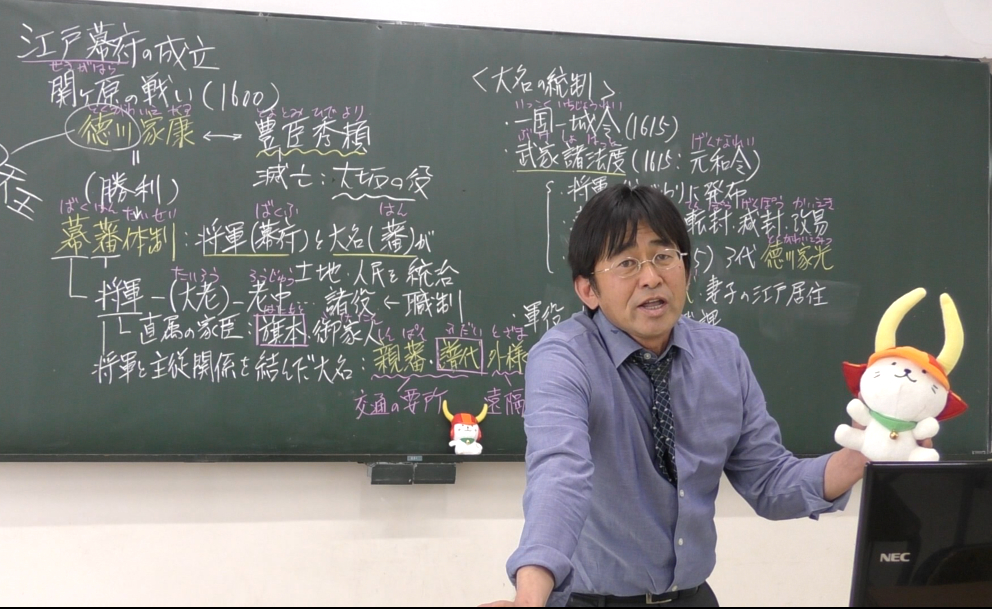 江戸幕府の成立
せきがはら
関ヶ原の戦い(1600)
とくがわいえやす とよとみひでより
徳川家康 ↔ 豊臣秀頼
(勝利)
滅亡:大坂の役
ばくはんたいせい ばくふ はん
幕藩体制:将軍(幕府)と大名(藩)が
土地・人民を統治
たいろう ろうじゅう
将軍-(大老)-老中…諸役←職制
はたもと
直属の家臣:旗本・御家人
しんぱん ふだい とざま
将軍と主従関係を結んだ大名:親藩・譜代・外様
交通の要所 遠隔
<大名の統制>
いっこくいちじょうれい
・一国一城令(1615)
ぶけしょはっと げんなれい
・武家諸法度(1615:元和令)
将軍 わりに発布
てんぽう げんぽう かいえき
転封・減封・改易
とくがわいえみつ
5) 3代 徳川家光
妻子の江戸居住
・軍役
NEC